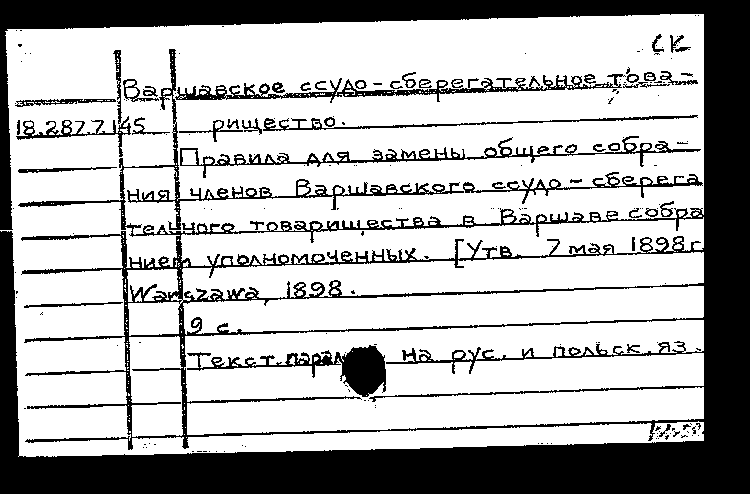 СК
Варшавское ссудо-сберегательное това-
18.287.7.145 рищество.
Правила для замены общего собра-
ния членов Варшавского ссудо-сберега
тельного товарищества в Варшаве собра
нием уполномоченных. [Утв. 7 мая 1898 г.
Warszawa, 1898.
9 с.
Текст парал на рус. и польск. яз.